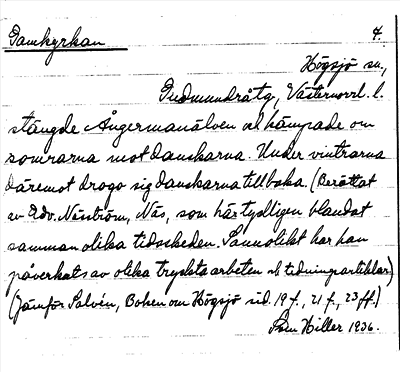 Gamkyrkan 4.
Högsjö sn.,
Gudmundråtg, Västernorrl. l.
stängde Ångermanälven och kämpade om
somrarna mot danskarna. Under vintrarna
däremot drogo sig danskarna tillbaka. (Berättat
av Edv. Näström, Näs, som här tydligen blandat
samman olika tidsskeden. Sannolikt har han
påverkats av olika tryckta arbeten och tidningsartiklar)
(Jämför Salvén, Boken om Högsjö sid. 19 f., 21 f., 23 ff.)
Hiller 1936.